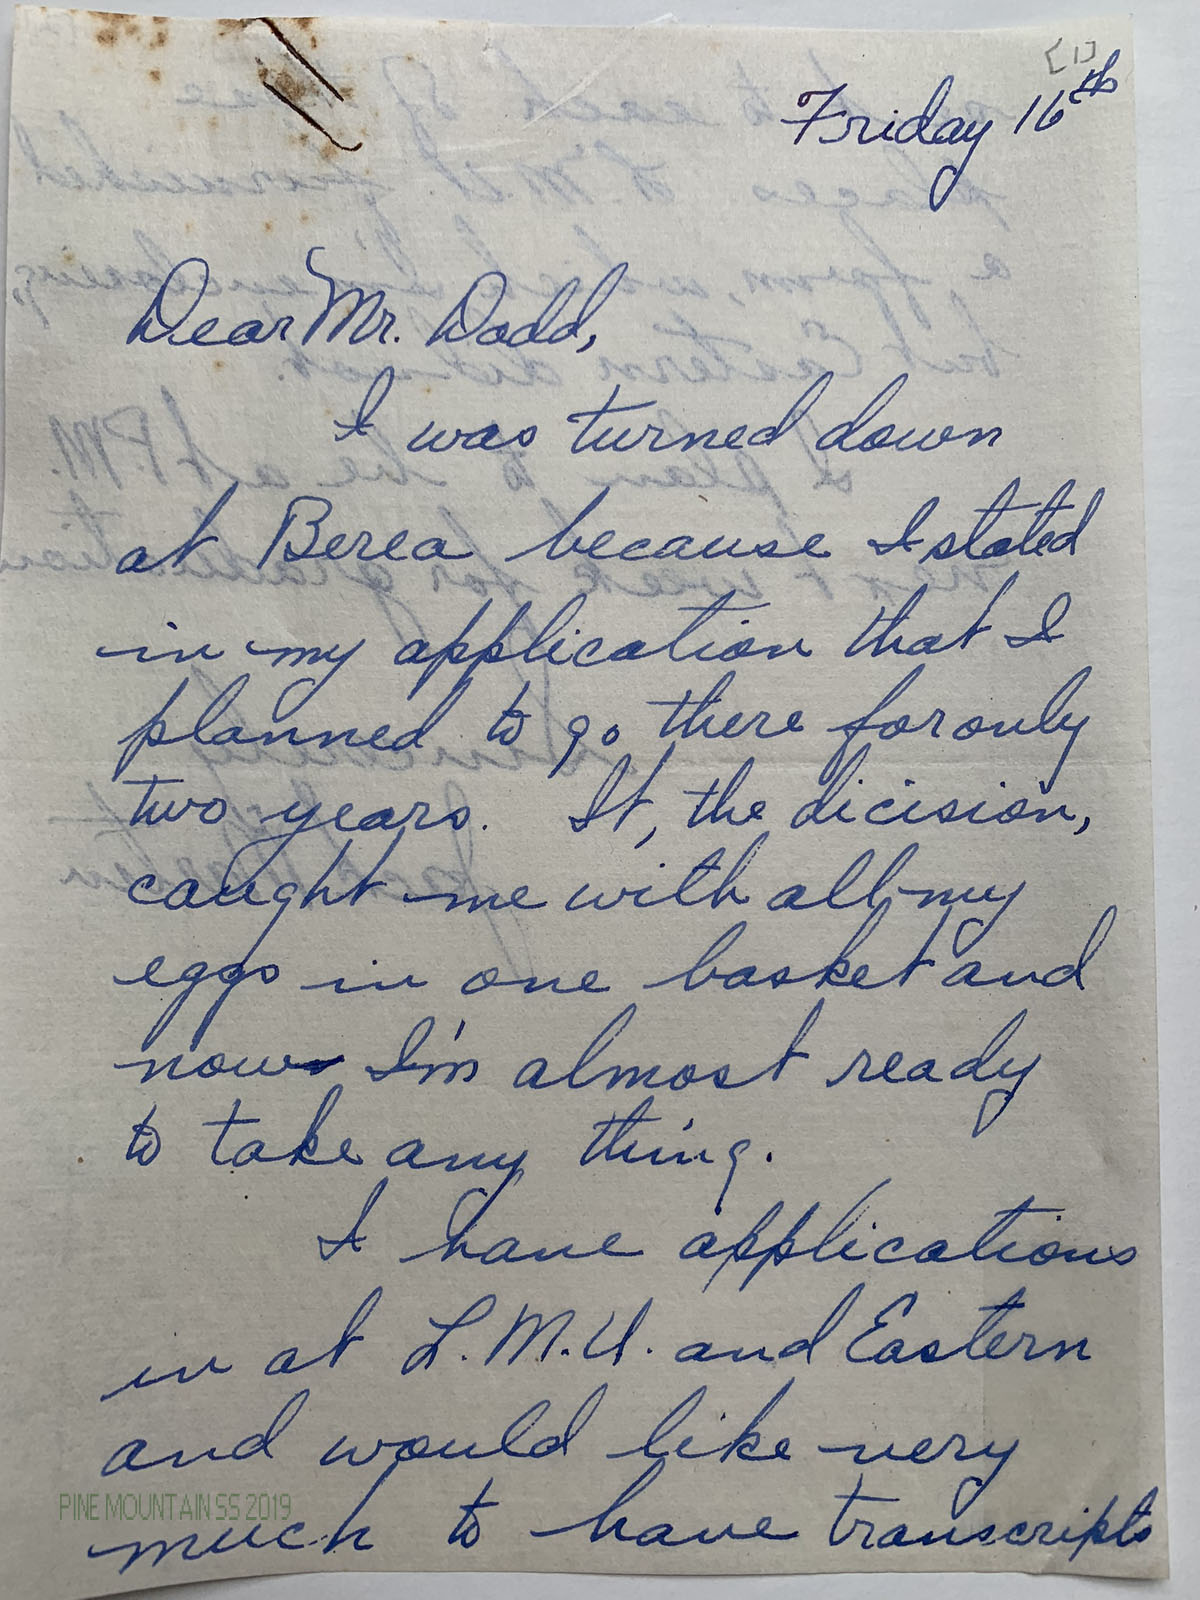 [1]
Friday 16th
Dear Mr. Dodd,
I was turned down
at Berea because I stated
in my application that I
planned to go there for only
two years. It, the dicision,
caught me with all my
eggs in one basket and
now I'm almost ready
to take any thing.
I have applications
in at L.M.U. and Eastern
and would like very
much to have transcripts
PINE MOUNTAIN SS 2019